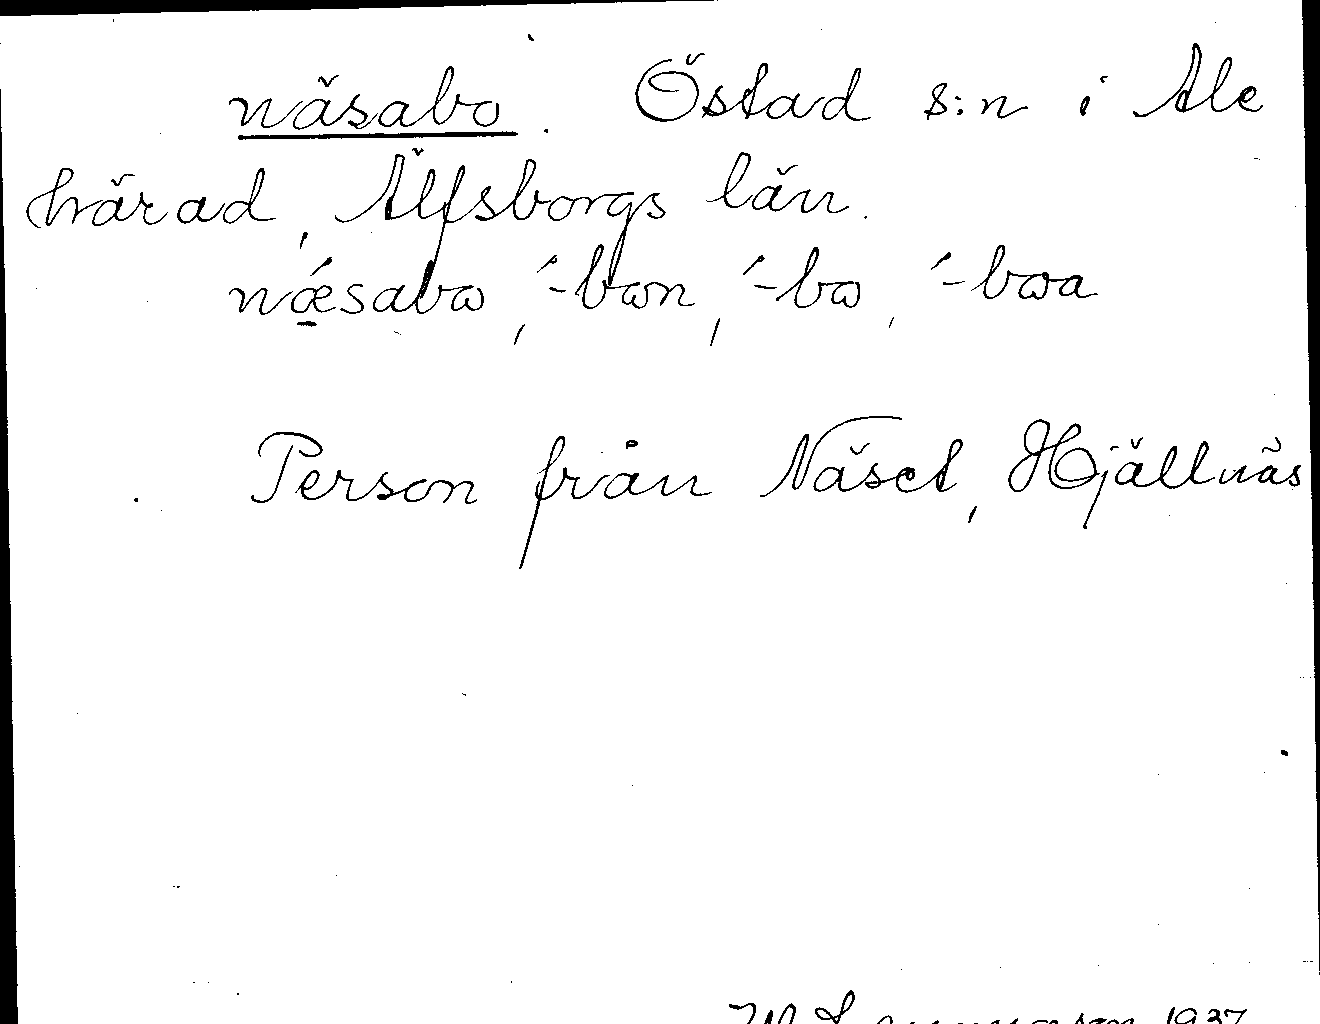 näsabo. Östad s:n i Ale
härad, Älfsborgs län.
nǽsabω, ´-bωn, ´-bω, ´-bωa
Person från Näset, Hjällnäs
1937